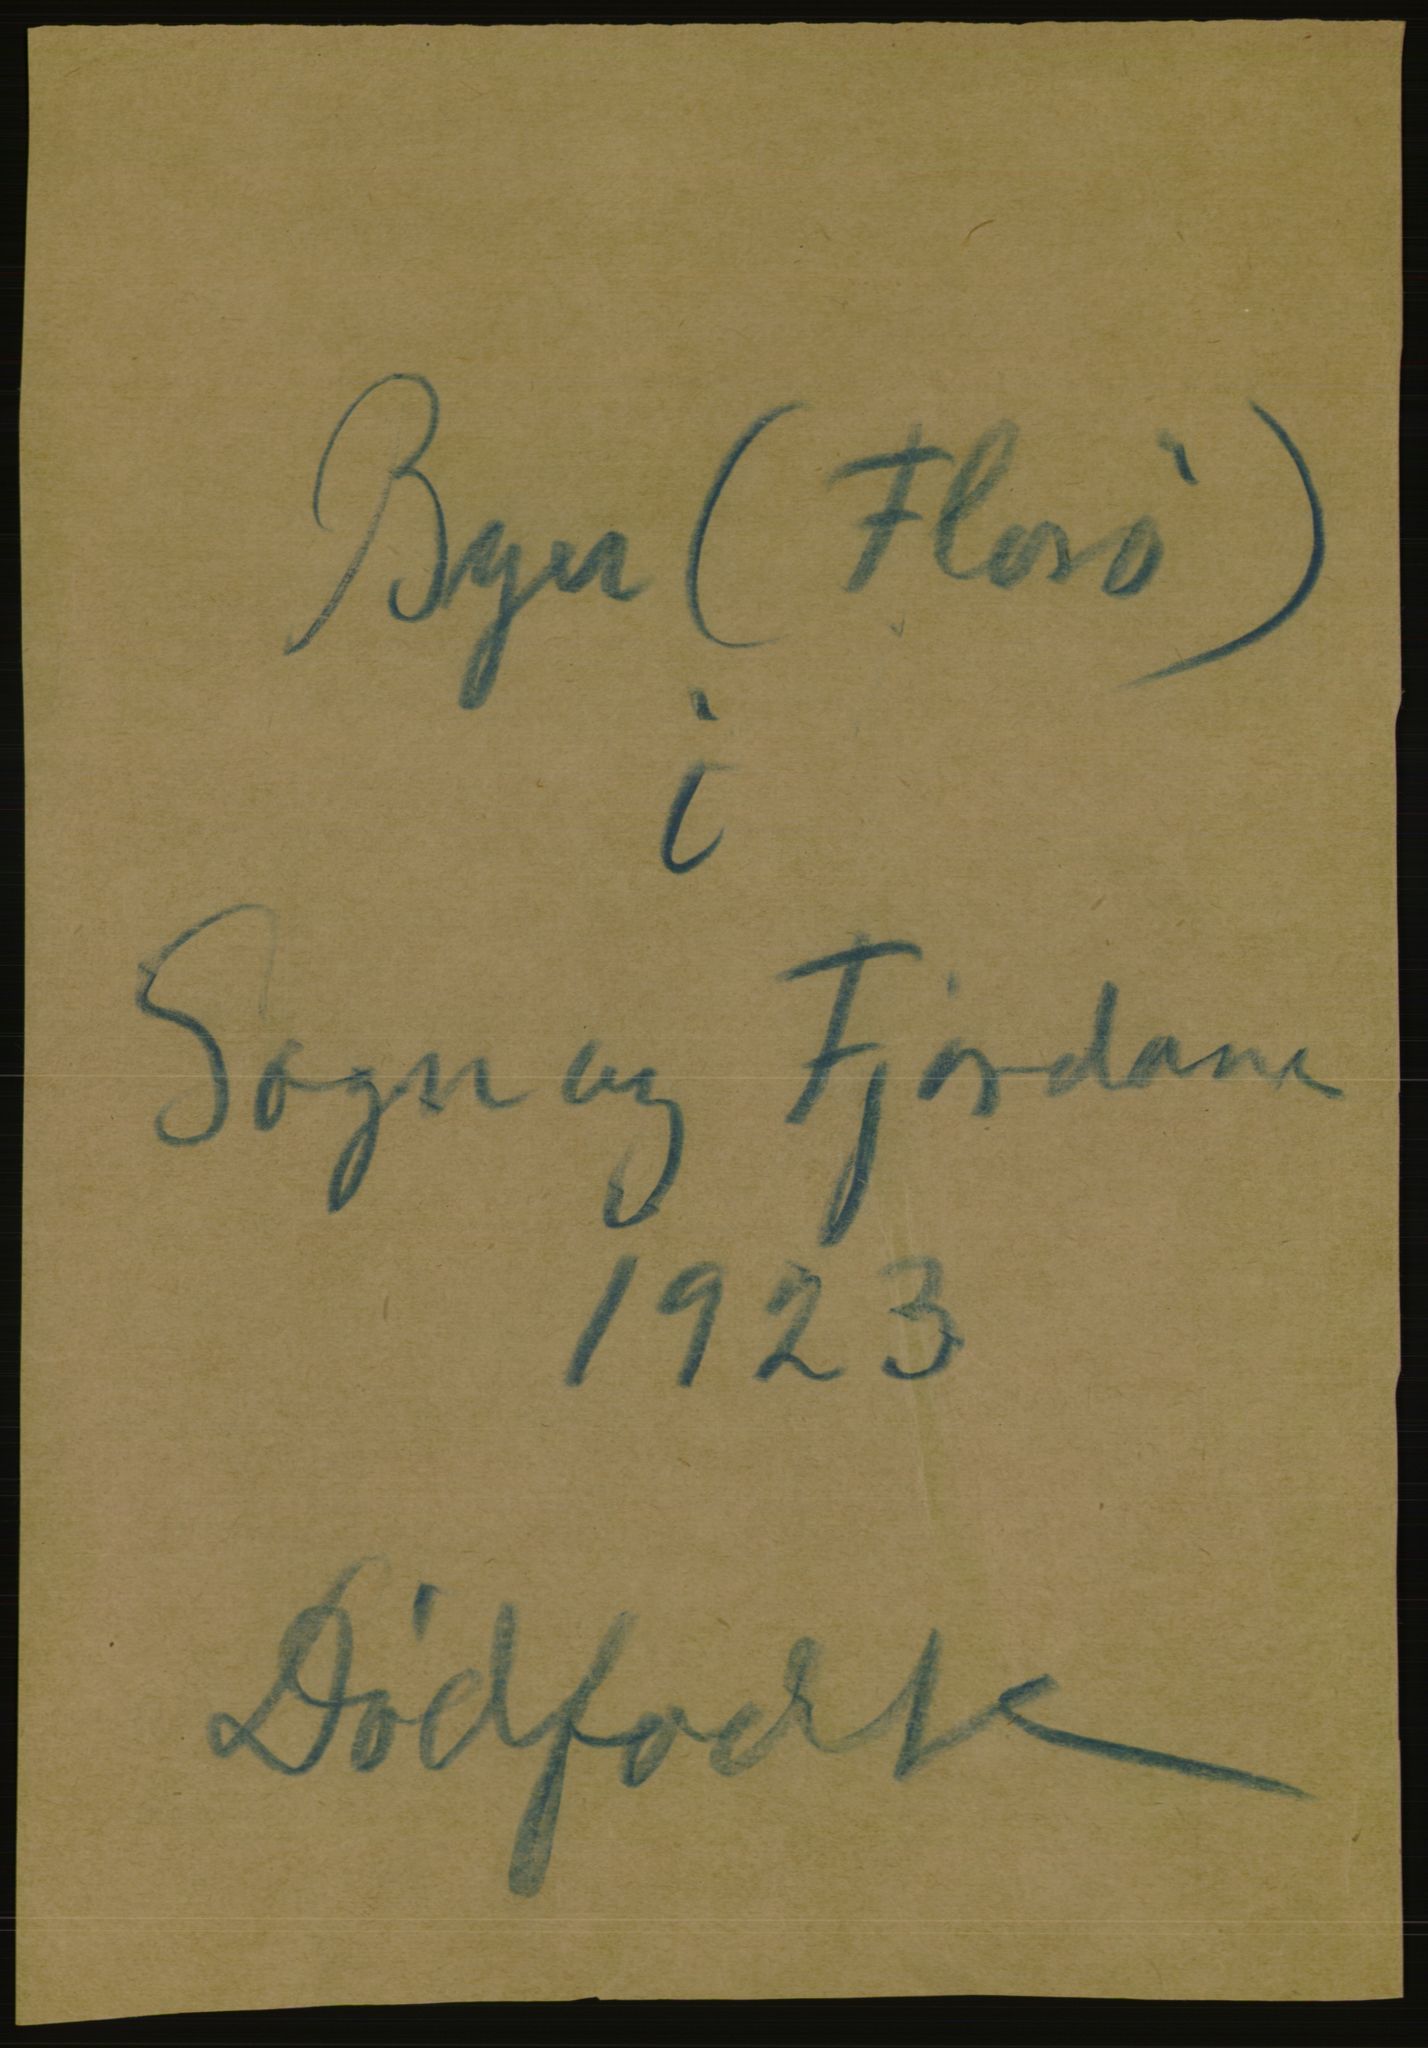 Byer (Florö)
i
Sogn og Fjordane
1923
Dödfødte